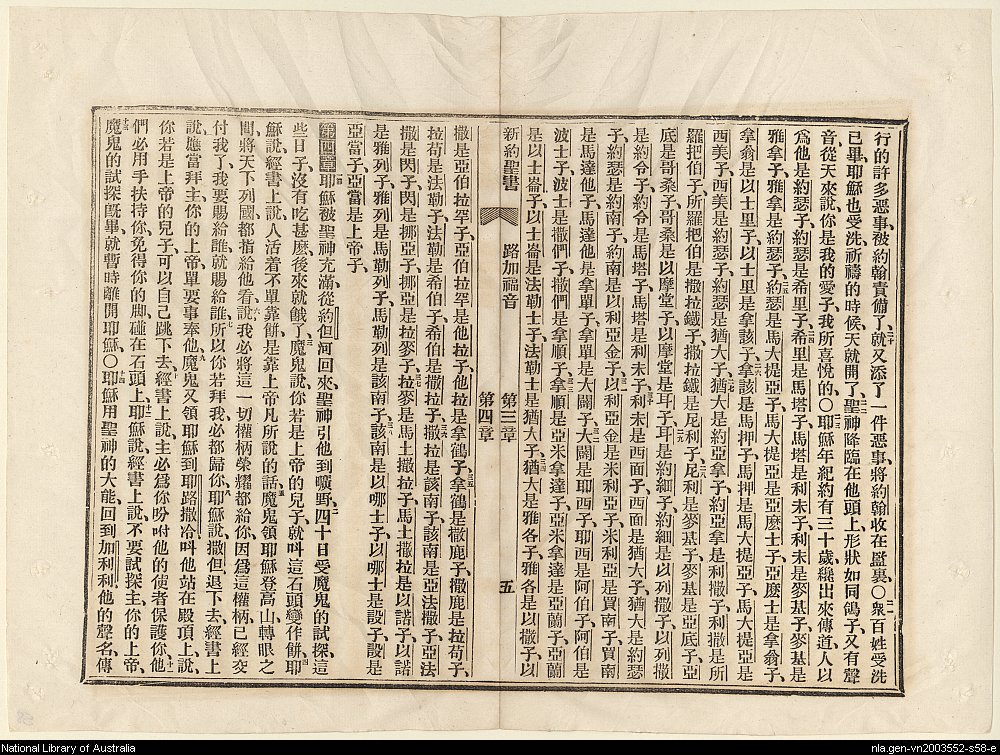 行的許多惡事、被約翰責備了、就又添了一件惡事、將約翰收在監裏。○衆百姓受洗
已畢、耶穌也受洗、祈禱的時候、天就開了、聖神降臨在他頭上、形狀如同鴿子、又有聲
音從天來說、你是我的愛子、我所喜悅的、○耶穌年紀約有三十歲、纔出來傳道、人以
爲他是約瑟子、約瑟是希里子、希里是馬塔子、馬塔是利未子、利未是麥基子、麥基是
雅拿子、雅拿是約瑟子、約瑟是馬大提亞子、馬大提亞是亞麽士子、亞麽士是拿翁子、
拿翁是以士里子、以士里是拿該子、拿該是馬押子、馬押是馬大提亞子、馬大提亞是
西美子、西美是約瑟子、約瑟是猶大子、猶大是約亞拿子、約亞拿是利撒子、利撒是所
羅把伯子、所羅把伯是撒拉鐵子、撒拉鐵是尼利子、尼利是麥基子、麥基是亞底子、亞
底是哥桑子、哥桑是以摩堂子、以摩堂是耳子、耳是約細子、約細是以列撒子、以列撒
是約令子、約令是馬塔子、馬塔是利未子、利未是西面子、西面是猶大子、猶大是約瑟
子、約瑟是約南子、約南是以利亞金子、以利亞金是米利亞子、米利亞是買南子、買南
是馬達他子、馬達他是拿單子、拿單是大闢子、大闢是耶西子、耶西是阿伯子、阿伯是
波士子、波士是撒們子、撒們是拿順子、拿順是亞米拿達子、亞米拿達是亞蘭子、亞蘭
是以士崙子、以士崙是法勒士子、法勒士是猶大子、猶大是雅各子、雅各是以撒子、以
新約聖書 路加福音 第三章 第四章 五
撒是亞伯拉罕子、亞伯拉罕是他拉子、他拉是拿鶴子、拿鶴是撒鹿子、撒鹿是拉苟子、
拉苟是法勒子、法勒是希伯子、希伯是撒拉子、撒拉是該南子、該南是亞法撒子、亞法
撒是閃子、閃是挪亞子、挪亞是拉麥子、拉麥是馬土撒拉子、馬土撒拉是以諾子、以諾
是雅列子、雅列是馬勒列子、馬勒列是該南子、該南是以哪士子、以哪士是設子、設是
亞當子、亞當是上帝子、
第四章 耶穌被聖神充滿、從約但河回來、聖神引他到曠野、四十日受魔鬼的試探、這
些日子、沒有吃甚麽、後來就餓了、魔鬼說、你若是上帝的兒子、就呌這石頭變作餅、耶
穌說、經書上說、人活着不單靠餅、是靠上帝凡所說的話、魔鬼領耶穌登高山、轉眼之
閒、將天下列國、都指給他看、說、我必將這一切權柄榮耀都給你、因爲這權柄已經交
付我了、我要賜給誰、就賜給誰、所以你若拜我、必都歸你、耶穌說、撒但退下去、經書上
說、應當拜主你的上帝、單要事奉他、魔鬼又領耶穌到耶路撒冷、呌他站在殿頂上、說、
你若是上帝的兒子、可以自己跳下去、經書上說、主必爲你吩咐他的使者保護你、他
們必用手扶持你、免得你的脚、碰在石頭上、耶穌說、經書上說、不要試探主你的上帝、
魔鬼的試探旣畢、就暫時離開耶穌、○耶穌用聖神的大能、回到加利利、他的聲名、傳
National Library of Australia
nla.gen-vn2003552-s58-e